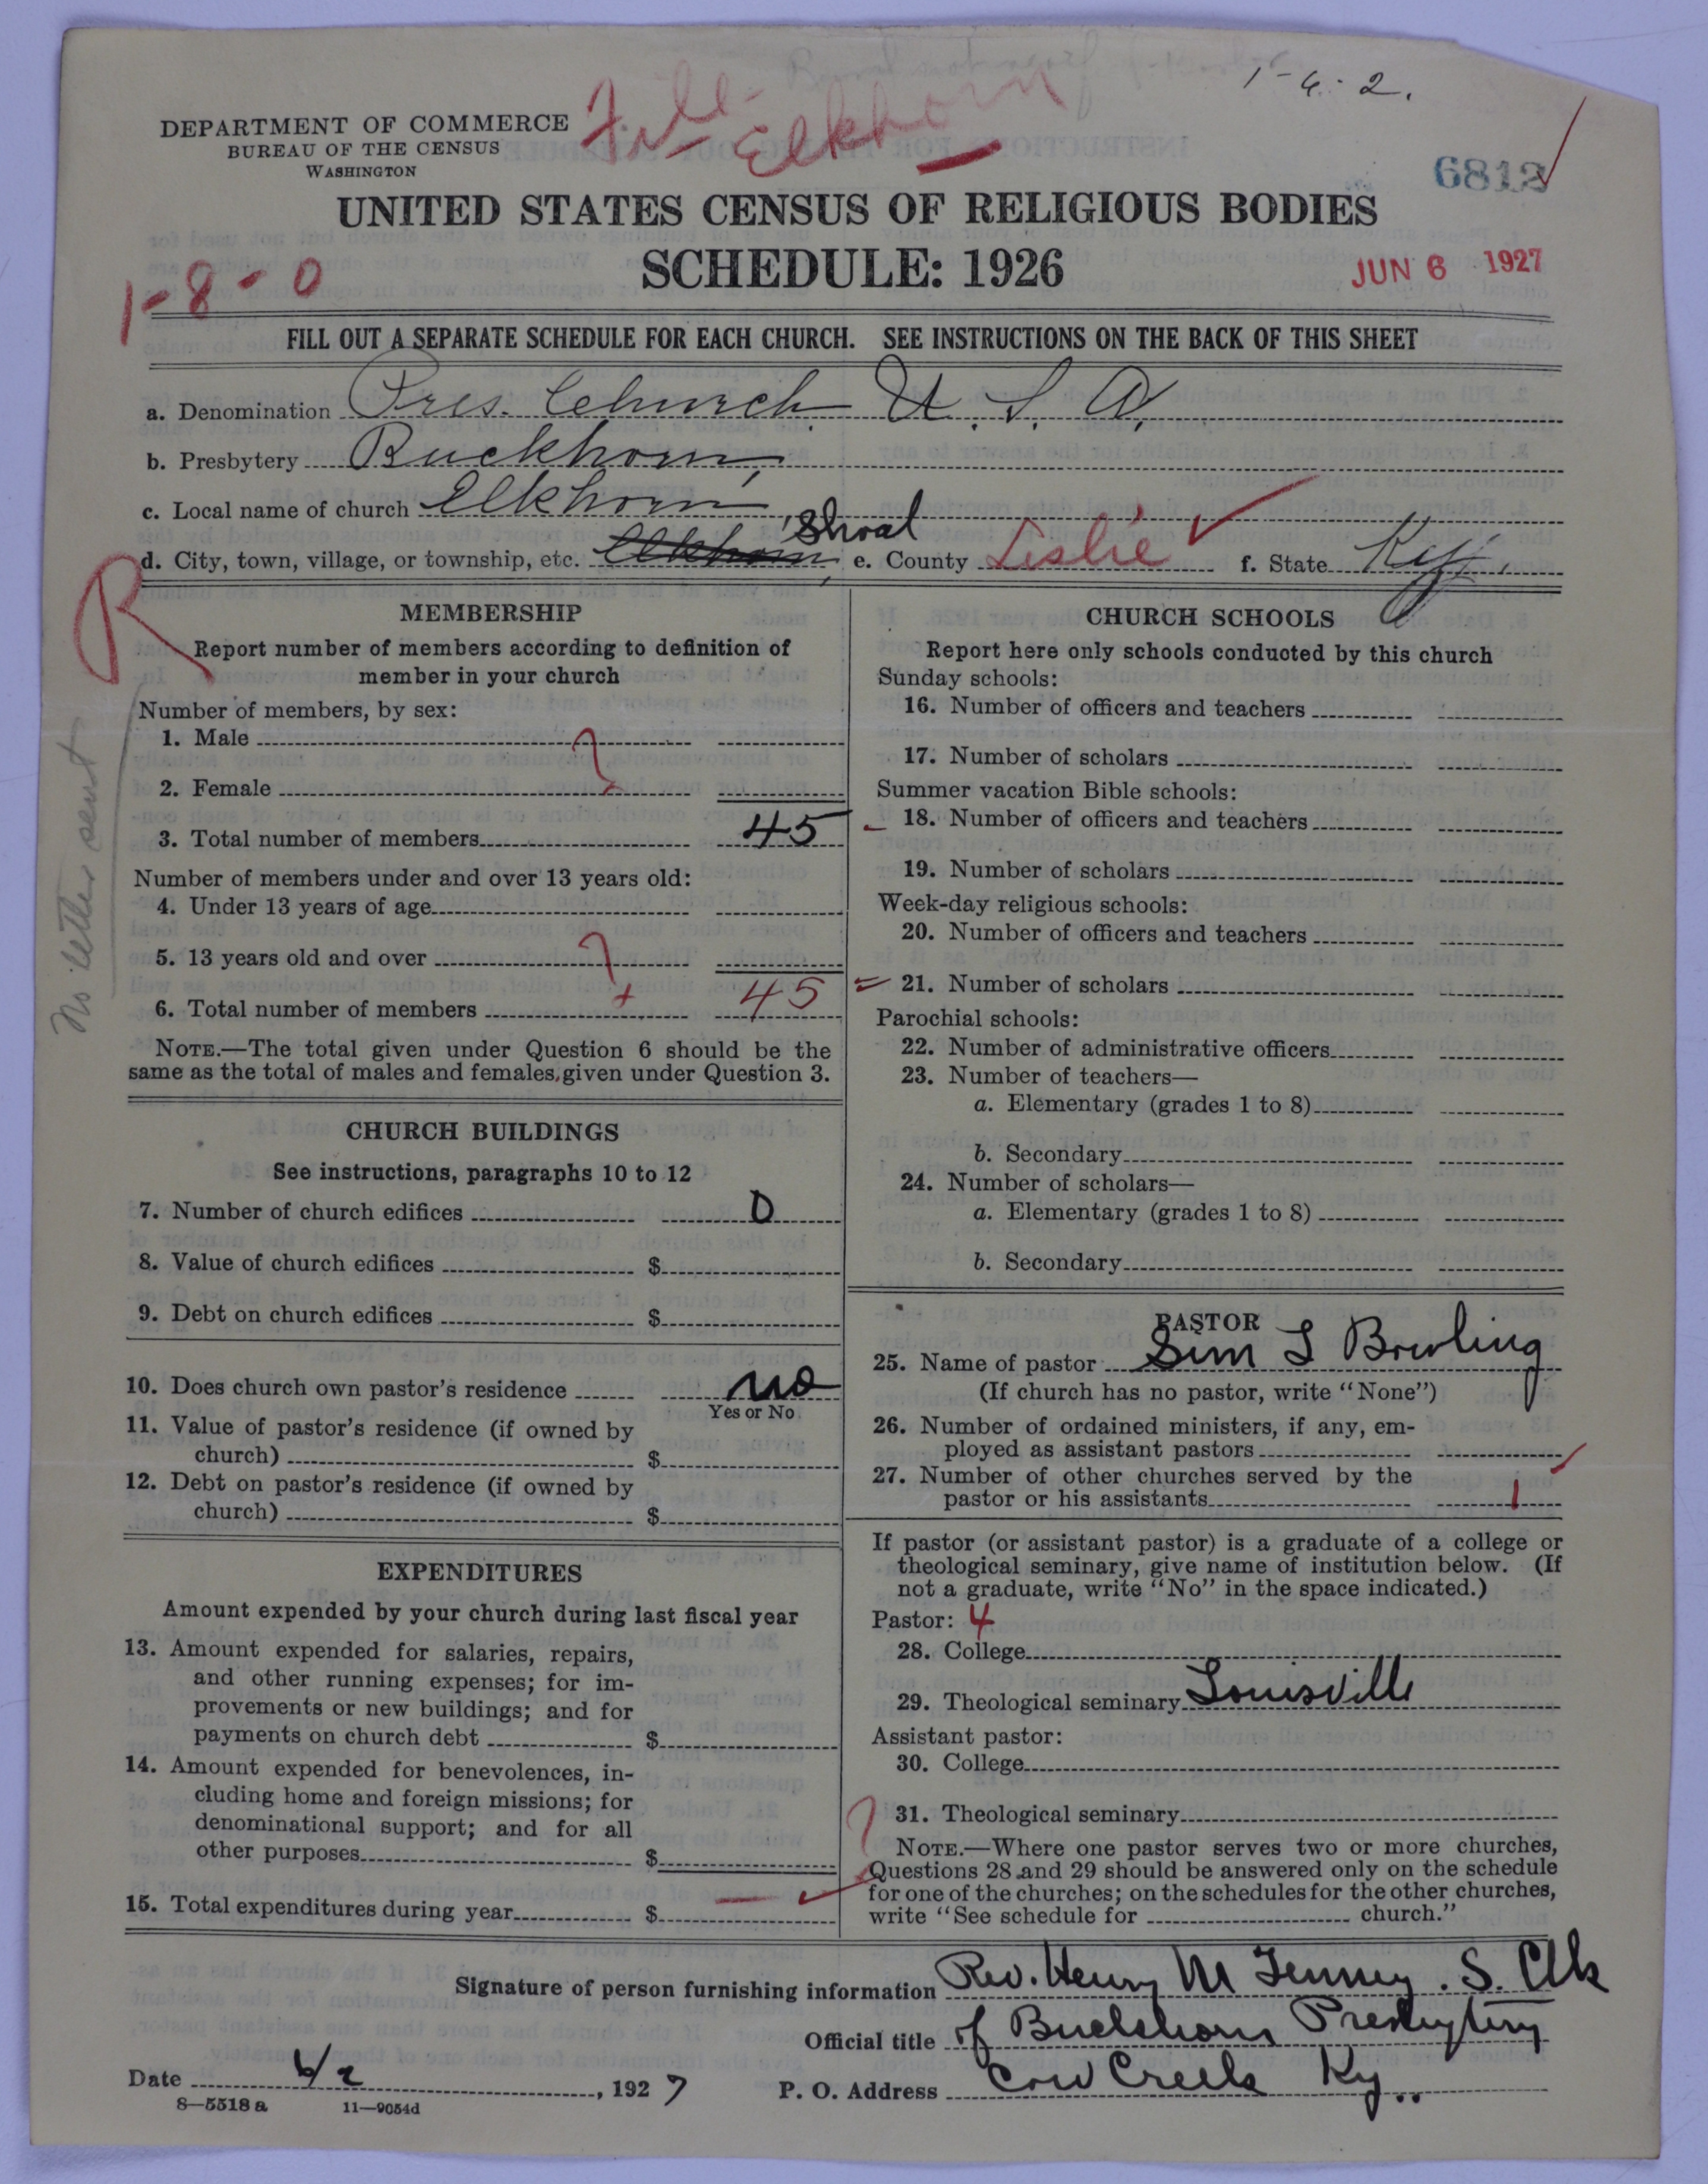 1-4-2.
File
Elkhorn
DEPARTMENT OF COMMERCE
BUREAU OF THE CENSUS
WASHINGTON
6812
UNITED STATES CENSUS OF RELIGIOUS BODIES
SCHEDULE: 1926
JUN 6 1927
1-8-0
FILL OUT A SEPARATE SCHEDULE FOR EACH CHURCH. SEE INSTRUCTIONS ON THE BACK OF THIS SHEET
a. Denomination Pres. Church U. S. A.
b. Presbytery Buckhorn
c. Local name of church Elkhorn
d. City, town, village, or township, etc. Elkhorn Shoal e. County Leslie f. State Ky.
R
No letter sent
MEMBERSHIP
Report number of members according to definition of
member in your church
Number of members, by sex:
1. Male ?
2. Female
3. Total number of members 45
Number of members under and over 13 years old:
4. Under 13 years of age
5. 13 years old and over ?
6. Total number of members + 45
NOTE.—The total given under Question 6 should be the
same as the total of males and females, given under Question 3.
CHURCH BUILDINGS
See instructions, paragraphs 10 to 12
7. Number of church edifices 0
8. Value of church edifices $
9. Debt on church edifices $
10. Does church own pastor's residence no
Yes or No
11. Value of pastor's residence (if owned by
church) $
12. Debt on pastor's residence (if owned by
church) $
EXPENDITURES
Amount expended by your church during last fiscal year
13. Amount expended for salaries, repairs,
and other running expenses; for im-
provements or new buildings; and for
payments on church debt $
14. Amount expended for benevolences, in-
cluding home and foreign missions; for
denominational support; and for all
other purposes $
15. Total expenditures during year $
CHURCH SCHOOLS
Report here only schools conducted by this church
Sunday schools:
16. Number of officers and teachers
17. Number of scholars
Summer vacation Bible schools:
18. Number of officers and teachers
19. Number of scholars
Week-day religious schools:
20. Number of officers and teachers
21. Number of scholars
Parochial schools:
22. Number of administrative officers
23. Number of teachers—
a. Elementary (grades 1 to 8)
b. Secondary
24. Number of scholars—
a. Elementary (grades 1 to 8)
b. Secondary
PASTOR
25. Name of pastor Sim L Bowling
(If church has no pastor, write "None")
26. Number of ordained ministers, if any, em-
ployed as assistant pastors
27. Number of other churches served by the
pastor or his assistants 1
If pastor (or assistant pastor) is a graduate of a college or
theological seminary, give name of institution below. (If
not a graduate, write "No" in the space indicated.)
Pastor: 4
28. College
29. Theological seminary Louisville
Assistant pastor:
30. College
31. Theological seminary
NOTE.—Where one pastor serves two or more churches,
Questions 28 and 29 should be answered only on the schedule
for one of the churches; on the schedules for the other churches,
write "See schedule for church."
Signature of person furnishing information Rev. Henry M Tenney. S. Clk
Official title of Buckhorn Presbytery
Date 6/2, 1927 P. O. Address Cow Creek Ky..
8—5518 a 11—9054d